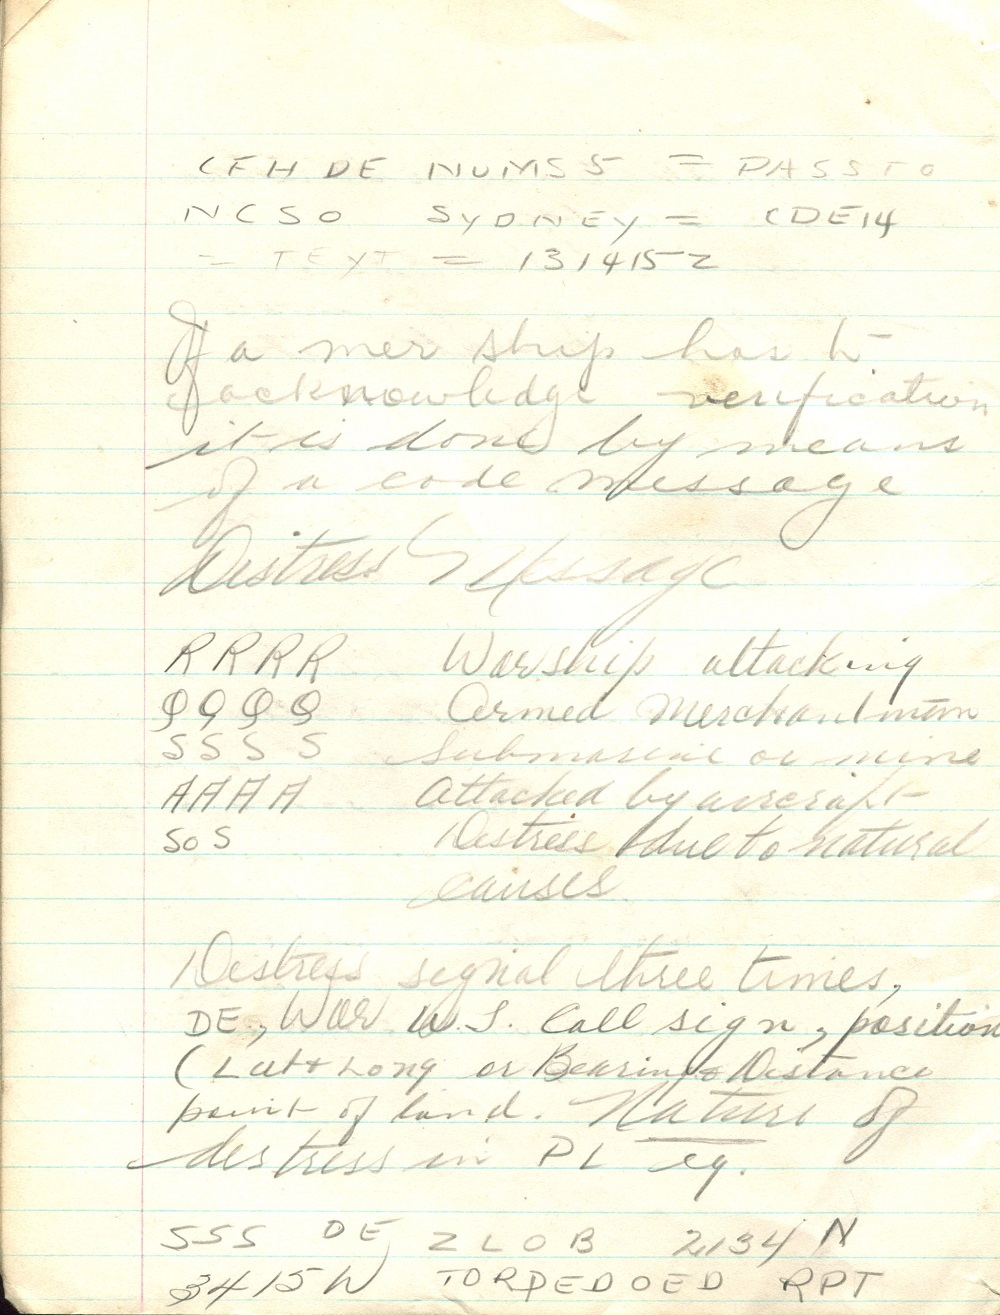 CFH DE NUMS5 = PASS TO
NCSO SYDNEY = CDE14
= TEXT = 131415Z
If a mer ship has to
acknowledge verification
it is done by means
of a code message
Distress Message
RRRR Warship attacking
QQQQ Armed Merchantmen
SSSS Submarine or mine
AAAA Attacked by aircraft
SOS Distress due to natural
causes
Distress signal three times,
DE, War W.T. Call sign, position
(Lat & Long or Bearing & Distance
point of land. Nature of
distress in PL eg.
SSS DE ZLOB 2134N
3415W TORPEDOED RPT